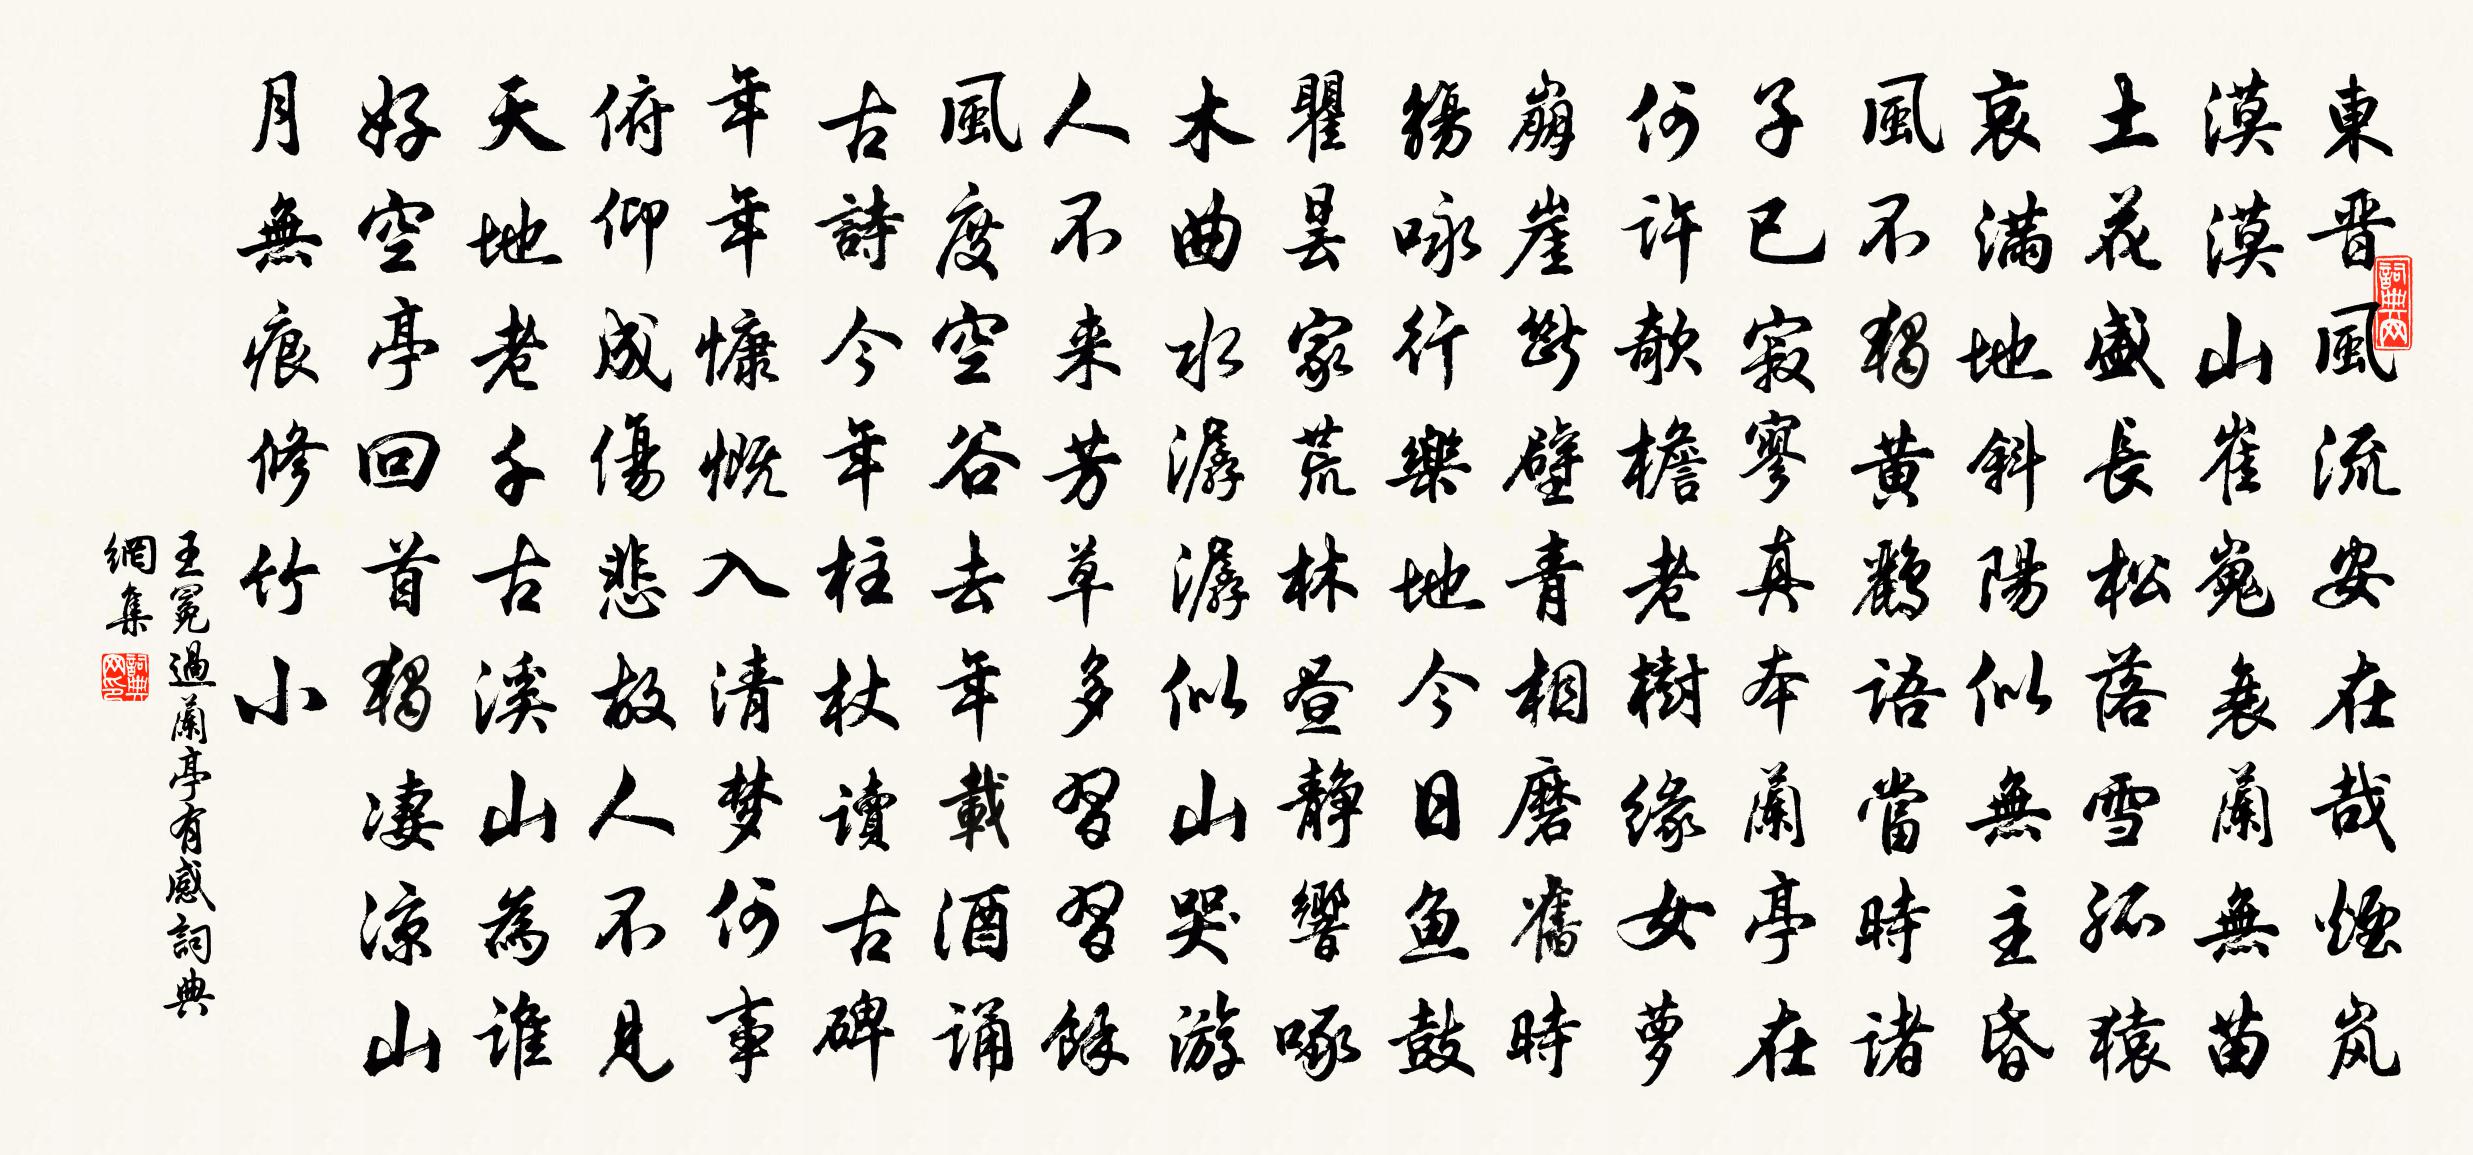 東晋風流安在哉煙岚
漠漠山崔嵬衰蘭無苗
土花盛長松落雪孤猿
哀滿地斜陽似無主昏
風不獨黄鸝語當時诸
子已寂寥真本蘭亭在
何許欹檐老樹缘女萝
崩崖斷壁青相磨舊時
觴咏行樂地今日鱼鼓
瞿昙家荒林昼静響啄
木曲水潺潺似山哭游
人不来芳草多習習餘
風度空谷去年載酒诵
古詩今年柱杖读古碑
年年慷慨入清梦何事
俯仰成傷悲故人不見
天地老千古溪山為谁
好空亭回首獨凄凉山
月無痕修竹小
王冕過蘭亭有感詞典
網集
詞典网
詞典网印